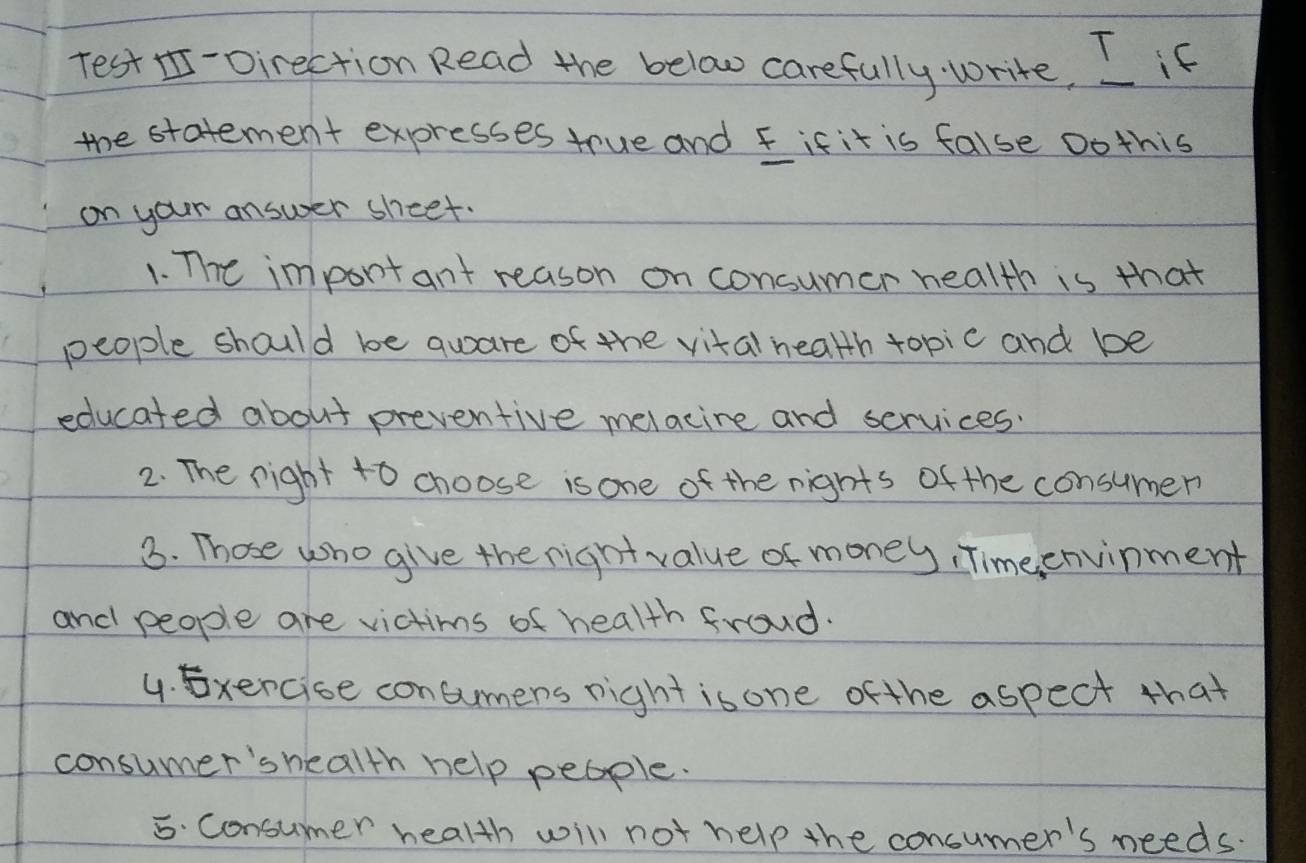 Test III - Direction Read the below carefully. write, T if
the statement expresses true and F if it is false Do this
on your answer sheet.
1. The important reason on consumer health is that
people should be aware of the vital health topic and be
educated about preventive melacine and services.
2. The right to choose is one of the rights of the consumer
3. Those who give the right value of money, Time, envinment
and people are victims of health fraud.
4. Exercise consumers right is one of the aspect that
consumer's health help people.
5. Consumer health will not help the consumer's needs.